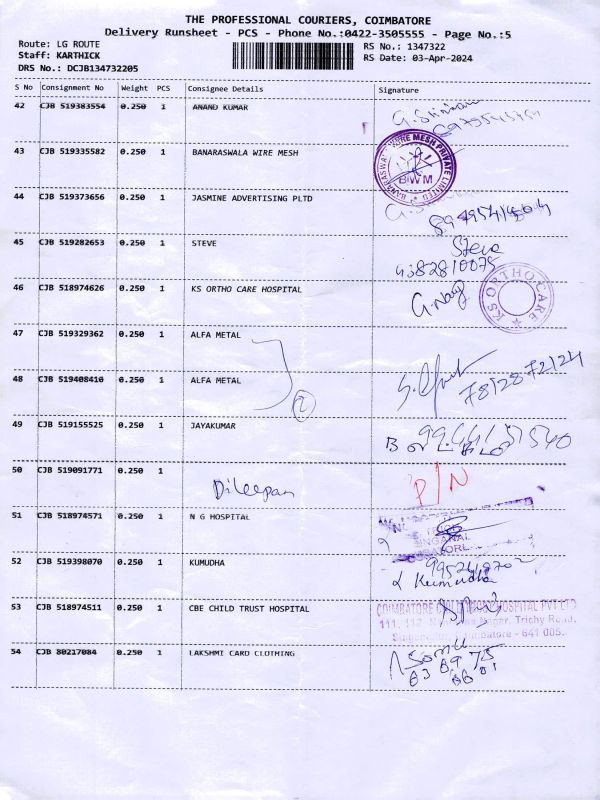 THE PROFESSIONAL COURIERS, COIMBATORE
Delivery Runsheet - PCS - Phone No.:0422-3505555 - Page No.:5
Route: LG ROUTE RS No.: 1347322
Staff: KARTHICK RS Date: 03-Apr-2024
DRS No.: DCJB134732205
S No Consignment No Weight PCS Consignee Details Signature
42 CJB 519383554 0.250 1 ANAND KUMAR
43 CJB 519335582 0.250 1 BANARASWALA WIRE MESH
BWM
44 CJB 519373656 0.250 1 JASMINE ADVERTISING PLTD
45 CJB 519282653 0.250 1 STEVE Steve
46 CJB 518974626 0.250 1 KS ORTHO CARE HOSPITAL KS ORTHO CARE
47 CJB 519329362 0.250 1 ALFA METAL
2
48 CJB 519408410 0.250 1 ALFA METAL 7812872124
49 CJB 519155525 0.250 1 JAYAKUMAR
50 CJB 519091771 0.250 1 Dileepan P/N
51 CJB 518974571 0.250 1 N G HOSPITAL
52 CJB 519398070 0.250 1 KUMUDHA
Kumudha
53 CJB 518974511 0.250 1 CBE CHILD TRUST HOSPITAL COIMBATORE HOSPITAL PVT LTD
111, 112, Nagar, Trichy Road,
- 641 005.
54 CJB 80217084 0.250 1 LAKSHMI CARD CLOTHING